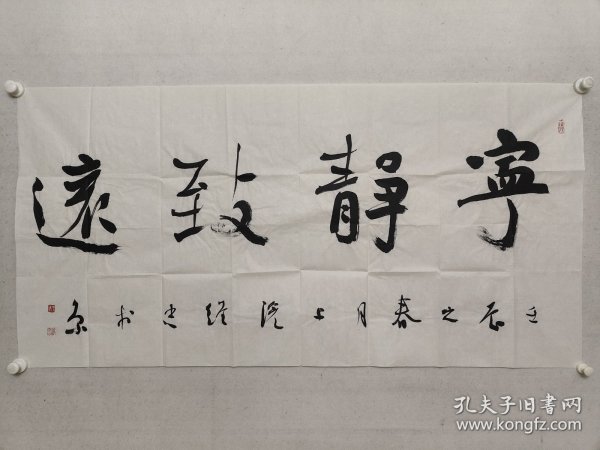 寧靜致遠
壬辰之春月上浣經忠於京
孔夫子旧書网
www.kongfz.com